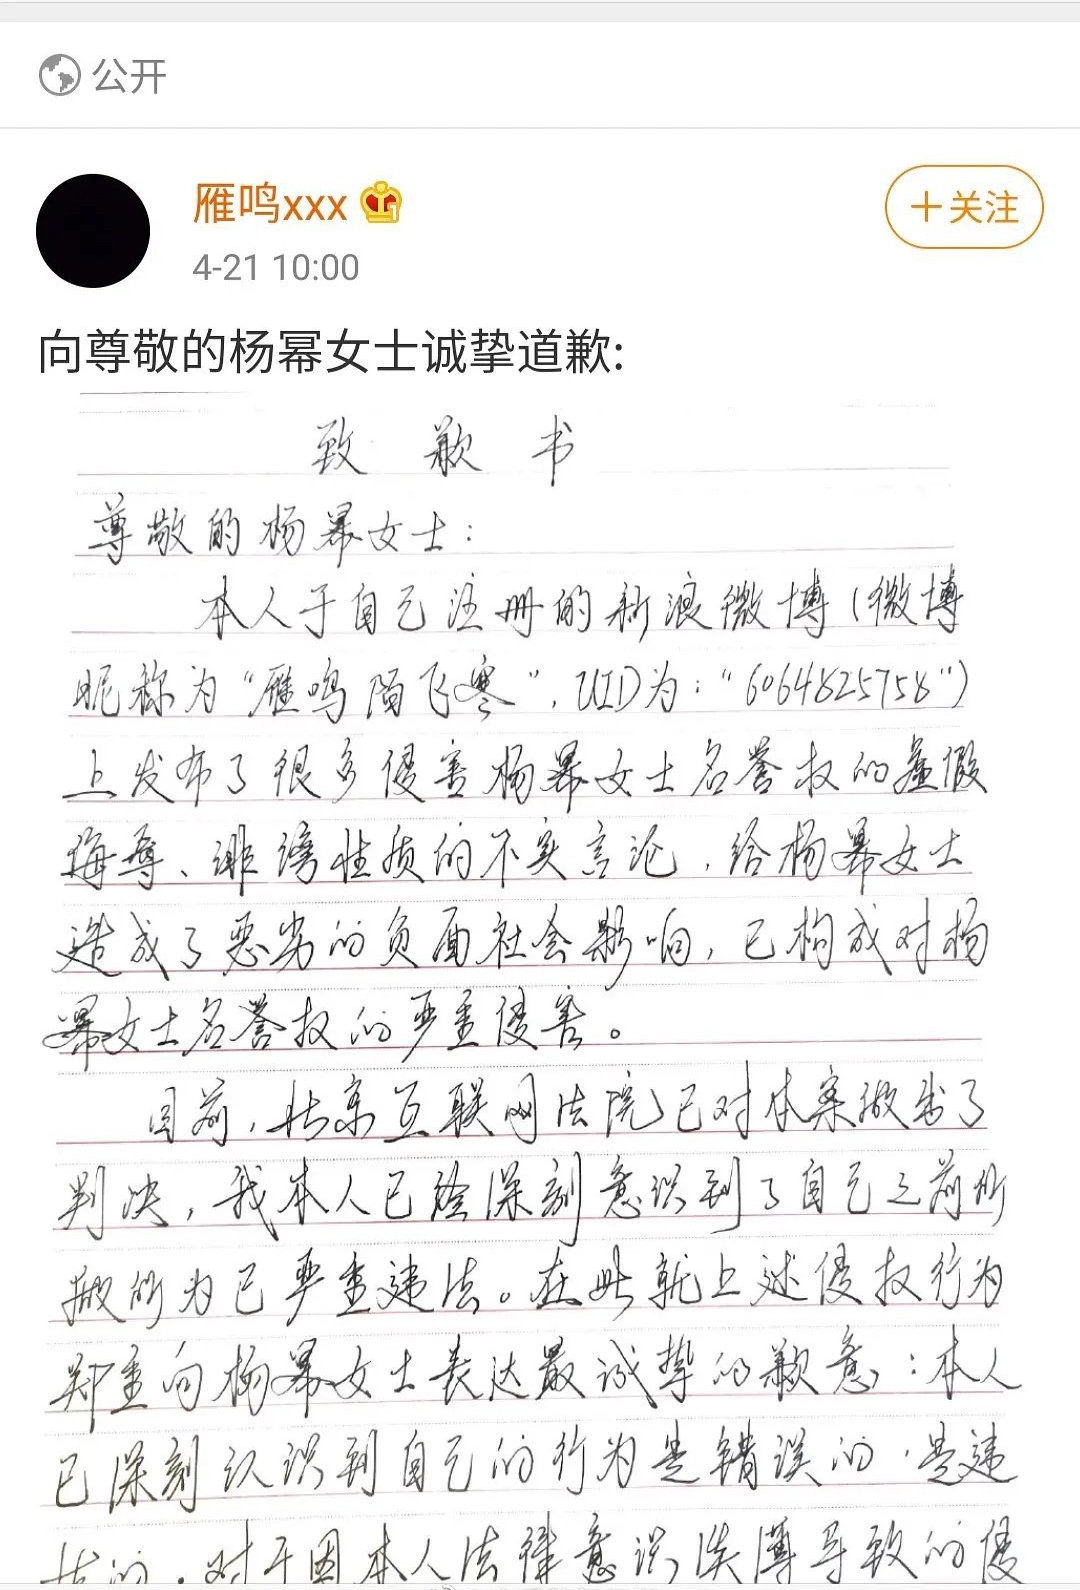 公开
雁鸣xxx
+关注
4-21 10:00
向尊敬的杨幂女士诚挚道歉:
致歉书
尊敬的杨幂女士:
本人于自己注册的新浪微博(微博
昵称为“雁鸣陌飞寒”,UID为:“6064825758”)
上发布了很多侵害杨幂女士名誉权的虚假
侮辱、诽谤性质的不实言论,给杨幂女士
造成了恶劣的负面社会影响,已构成对杨
幂女士名誉权的严重侵害。
目前,北京互联网法院已对本案做出了
判决,我本人已经深刻意识到了自己之前所
做所为已严重违法。在此就上述侵权行为
郑重向杨幂女士表达最诚挚的歉意:本人
已深刻认识到自己的行为是错误的,是违
法的,对于因本人法律意识淡薄导致的侵